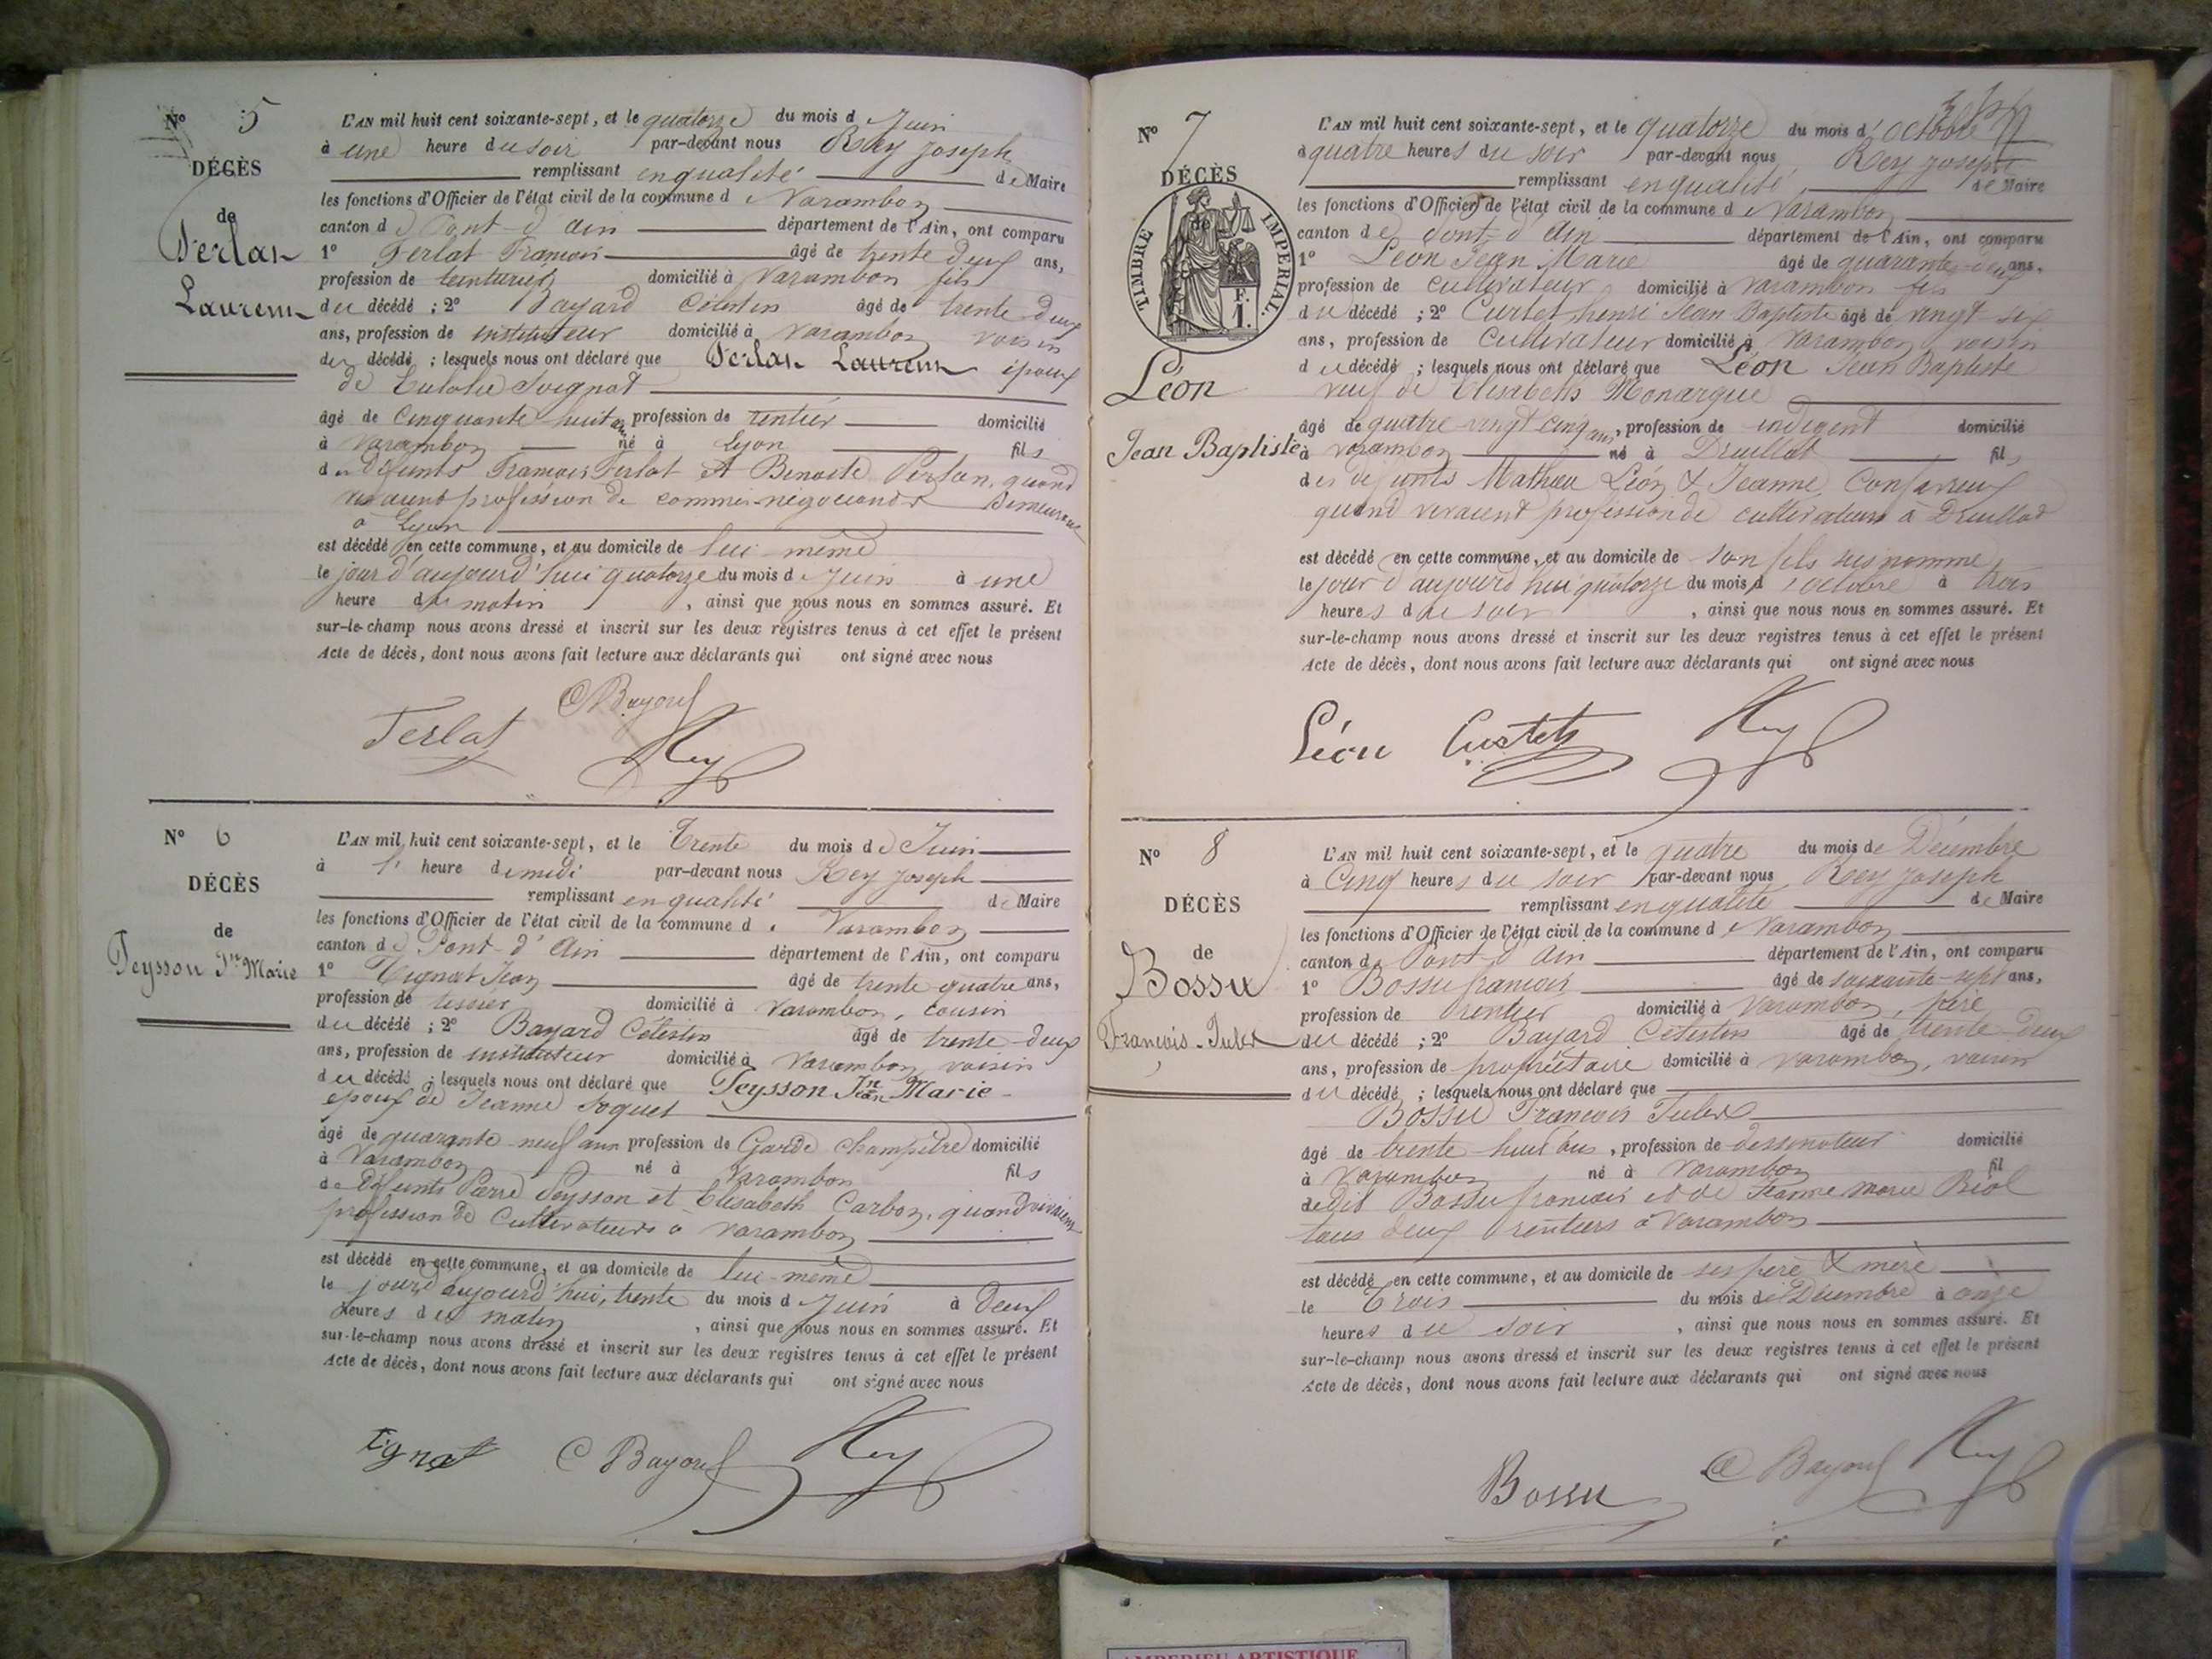 Nº 5
DÉCÈS
de
Ferlat
Laurent
L'AN mil huit cent soixante-sept, et le quatorze du mois de Juin
à une heure du soir par-devant nous Rey Joseph
remplissant en qualité de Maire
les fonctions d'Officier de l'état civil de la commune de Varambon
canton de Pont-d'Ain département de l'Ain, ont comparu
1º Ferlat François âgé de trente deux ans,
profession de teinturier domicilié à Varambon fils
du décédé ; 2º Bayard Célestin âgé de trente deux
ans, profession de instituteur domicilié à Varambon voisin
du décédé ; lesquels nous ont déclaré que Ferlat Laurent époux
de Eulalie Soignat
âgé de cinquante huit ans profession de rentier domicilié
à Varambon né à Lyon fils
des défunts François Ferlat et Benoite quand
vivaient profession de commis-négociant demeurant
à Lyon
est décédé en cette commune, et au domicile de lui-même
le jour d'aujourd'hui quatorze du mois de Juin à une
heure du matin , ainsi que nous nous en sommes assuré. Et
sur-le-champ nous avons dressé et inscrit sur les deux registres tenus à cet effet le présent
Acte de décès, dont nous avons fait lecture aux déclarants qui ont signé avec nous
C Bayard
Ferlat Rey
Nº 6
DÉCÈS
de
Teysson Jn Marie
L'AN mil huit cent soixante-sept, et le Trente du mois de Juin
à 1' heure de midi par-devant nous Rey Joseph
remplissant en qualité de Maire
les fonctions d'Officier de l'état civil de la commune de Varambon
canton de Pont-d'Ain département de l'Ain, ont comparu
1º Tignat Jean âgé de trente quatre ans,
profession de tissier domicilié à Varambon, cousin
du décédé ; 2º Bayard Célestin âgé de trente-deux
ans, profession de instituteur domicilié à Varambon voisin
du décédé ; lesquels nous ont déclaré que Teysson Jean Marie
époux de Jeanne Soquet
âgé de quarante-neuf ans profession de Garde Champêtre domicilié
à Varambon né à Varambon fils
de défunts Pierre Teysson et Elisabeth Carbon, quand vivaient
profession de Cultivateurs à Varambon
est décédé en cette commune, et au domicile de lui-même
le jour d'aujourd'hui, trente du mois de Juin à deux
heures du matin , ainsi que nous nous en sommes assuré. Et
sur-le-champ nous avons dressé et inscrit sur les deux registres tenus à cet effet le présent
Acte de décès, dont nous avons fait lecture aux déclarants qui ont signé avec nous
tignat C Bayard Rey
Nº 7
DÉCÈS
de
TIMBRE IMPÉRIAL
1 F.
Léon
Jean Baptiste
L'AN mil huit cent soixante-sept, et le quatorze du mois d'octobre
à quatre heures du soir par-devant nous Rey Joseph
remplissant en qualité de Maire
les fonctions d'Officier de l'état civil de la commune de Varambon
canton de Pont d'Ain département de l'Ain, ont comparu
1º Léon Jean Marie âgé de quarante-deux ans,
profession de cultivateur domicilié à Varambon fils
du décédé ; 2º Curtet henri Jean Baptiste âgé de vingt six
ans, profession de Cultivateur domicilié à Varambon voisin
du décédé ; lesquels nous ont déclaré que Léon Jean Baptiste
veuf de Elisabeth Monarque
âgé de quatre vingt cinq ans, profession de indigent domicilié
à Varambon né à Druillat fils
des défunts Mathieu Léon & Jeanne Confavreux
quand vivaient profession de cultivateurs à Druillat
est décédé en cette commune, et au domicile de son fils susnommé
le jour d'aujourd'hui quatorze du mois d'octobre à trois
heures du soir , ainsi que nous nous en sommes assuré. Et
sur-le-champ nous avons dressé et inscrit sur les deux registres tenus à cet effet le présent
Acte de décès, dont nous avons fait lecture aux déclarants qui ont signé avec nous
Léon Curtet Rey
Nº 8
DÉCÈS
de
Bossu
François-Jules
L'AN mil huit cent soixante-sept, et le quatre du mois de Décembre
à Cinq heures du soir par-devant nous Rey Joseph
remplissant en qualité de Maire
les fonctions d'Officier de l'état civil de la commune de Varambon
canton de Pont d'Ain département de l'Ain, ont comparu
1º Bossu françois âgé de soixante-sept ans,
profession de rentier domicilié à Varambon, père
du décédé ; 2º Bayard Célestin âgé de trente-deux
ans, profession de propriétaire domicilié à Varambon, voisin
du décédé ; lesquels nous ont déclaré que
Bossu François Jules
âgé de trente-huit ans, profession de dessinateur domicilié
à Varambon né à Varambon fil
de dit Bossu françois et de Jeanne Marie Réal
tous deux rentiers à Varambon
est décédé en cette commune, et au domicile de ses père & mère
le Trois du mois de Décembre à onze
heures du soir , ainsi que nous nous en sommes assuré. Et
sur-le-champ nous avons dressé et inscrit sur les deux registres tenus à cet effet le présent
Acte de décès, dont nous avons fait lecture aux déclarants qui ont signé avec nous
Bossu C Bayard Rey
AMBERIEU ARTISTIQUE